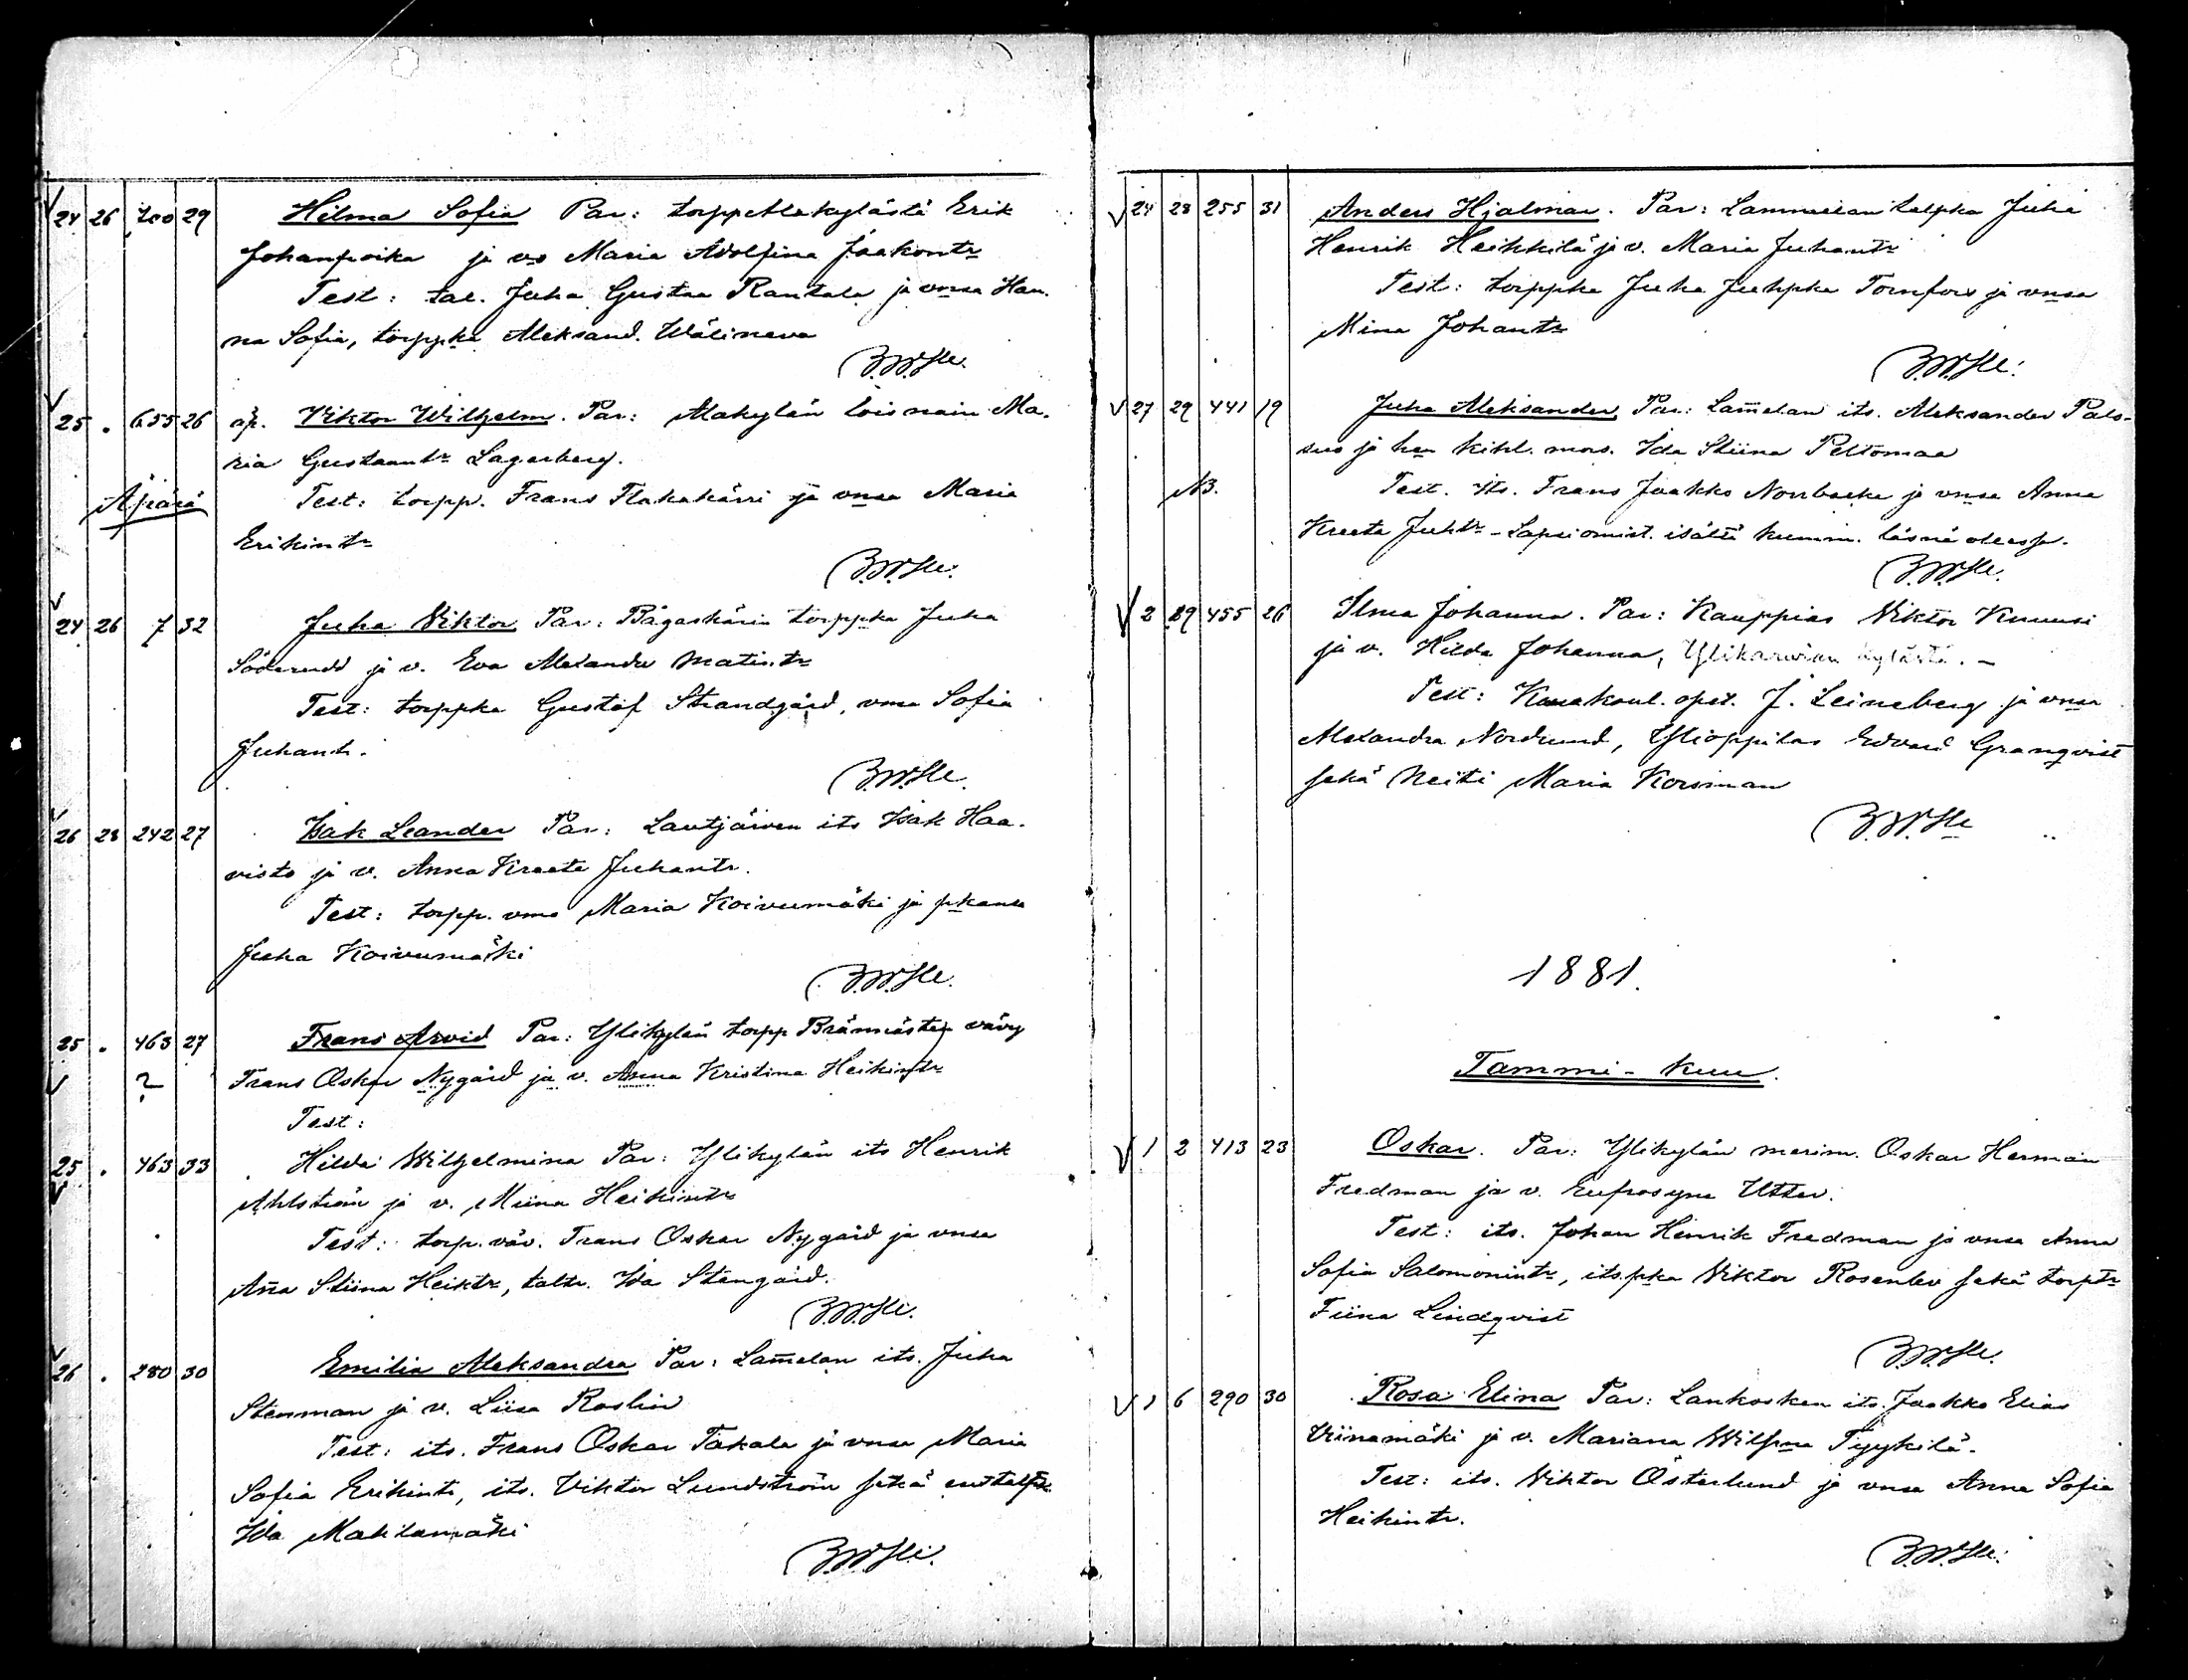 24 26 700 29 Hilma Sofia Par: torpp Alakylästä Erik
Johanpoika ja vo Maria Adolfina Jaakontr
Test: tal. Juha Gustaa Rantala ja vnsa Han-
na Sofia, torppka Aleksand. Wälineva
25 . 655 26 äp. Viktor Wilhelm. Par: Alakylän lois nain Ma-
ria Gustaantr Lagerberg.
Äpärä Test: torpp. Frans Flakakärri ja vnsa Maria
Erikintr
24 26 7 32 Juha Viktor Par: Bågaskärin torppka Juha
Söderlund ja v. Eva Alexandra Matintr
Test: torppka Gustaf Strandgård, vmo Sofia
Juhantr.
26 28 242 27 Isak Leander Par: Lautjärven its Isak Haa-
visto ja v. Anna Kreeta Juhantr.
Test: torpp. vmo Maria Koivumäki ja pkansa
Juha Koivumäki
25 . 463 27 Frans Arvid Par: Ylikylän torpp Brännästen vävy
? Frans Oskar Nygård ja v. Anna Kristina Heikintr
Test:
25 . 463 33 Hilda Wilhelmina Par: Ylikylän its Henrik
Ahlström ja v. Miina Heikintr
Test: torp. väv. Frans Oskar Nygård ja vnsa
Aña Stiina Heiktr, taltr. Ida Stengård.
26 . 280 30 Emilia Aleksandra Par: Lam̄elan its. Juha
Stenman ja v. Liisa Roslin
Test: its. Frans Oskar Takala ja vnsa Maria
Sofia Erikintr, its. Viktor Lundström sekä
Ida Makilamäki
24 28 255 31 Anders Hjalmar. Par: Lammelan talpka Juha
Henrik Heikkilä ja v. Maria Juhantr
Test: torppka Juha Juhpka Tornfors ja vnsa
Mina Johantr
27 29 441 19 Juha Aleksander Par: Lam̄elan its. Aleksander Palo-
suo ja hän kihl. mors. Ida Stiina Peltomaa
NB. Test. its. Frans Jaakko Norrbacka ja vnsa Anna
Kreeta Juhtr - Lapsi omist. isältä kumm. läsnä olessa.
2 29 455 26 Ilma Johanna. Par: Kauppias Viktor Kuuusi
ja v. Hilda Johanna, Ylikarvian kylästä. -
Test: Kansakoul. opet. J. Leineberg ja vnsa
Alexandra Nordlund, Ylioppilas Edvard Granqvist
sekä Neiti Maria Korsman
1881.
Tammi-kuu.
1 2 413 23 Oskar. Par: Ylikylän merim. Oskar Herman
Fredman ja v. Eufrosyne Utter.
Test: its. Johan Henrik Fredman ja vnsa Anna
Sofia Salomonintr, its.pka Viktor Rosenlev sekä torptr
Fiina Lindqvist
1 6 290 30 Rosa Elina Par: Lankosken its. Jaakko Elias
Viinamäki ja v. Mariana Wilhna Tyykilä.
Test: its. Viktor Österlund ja vnsa Anna Sofia
Heikintr.